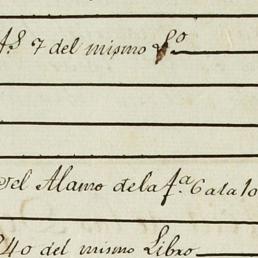 7 del mismo L.º
el Alamo de la 4.ª Catalo
40 del mismo Libro